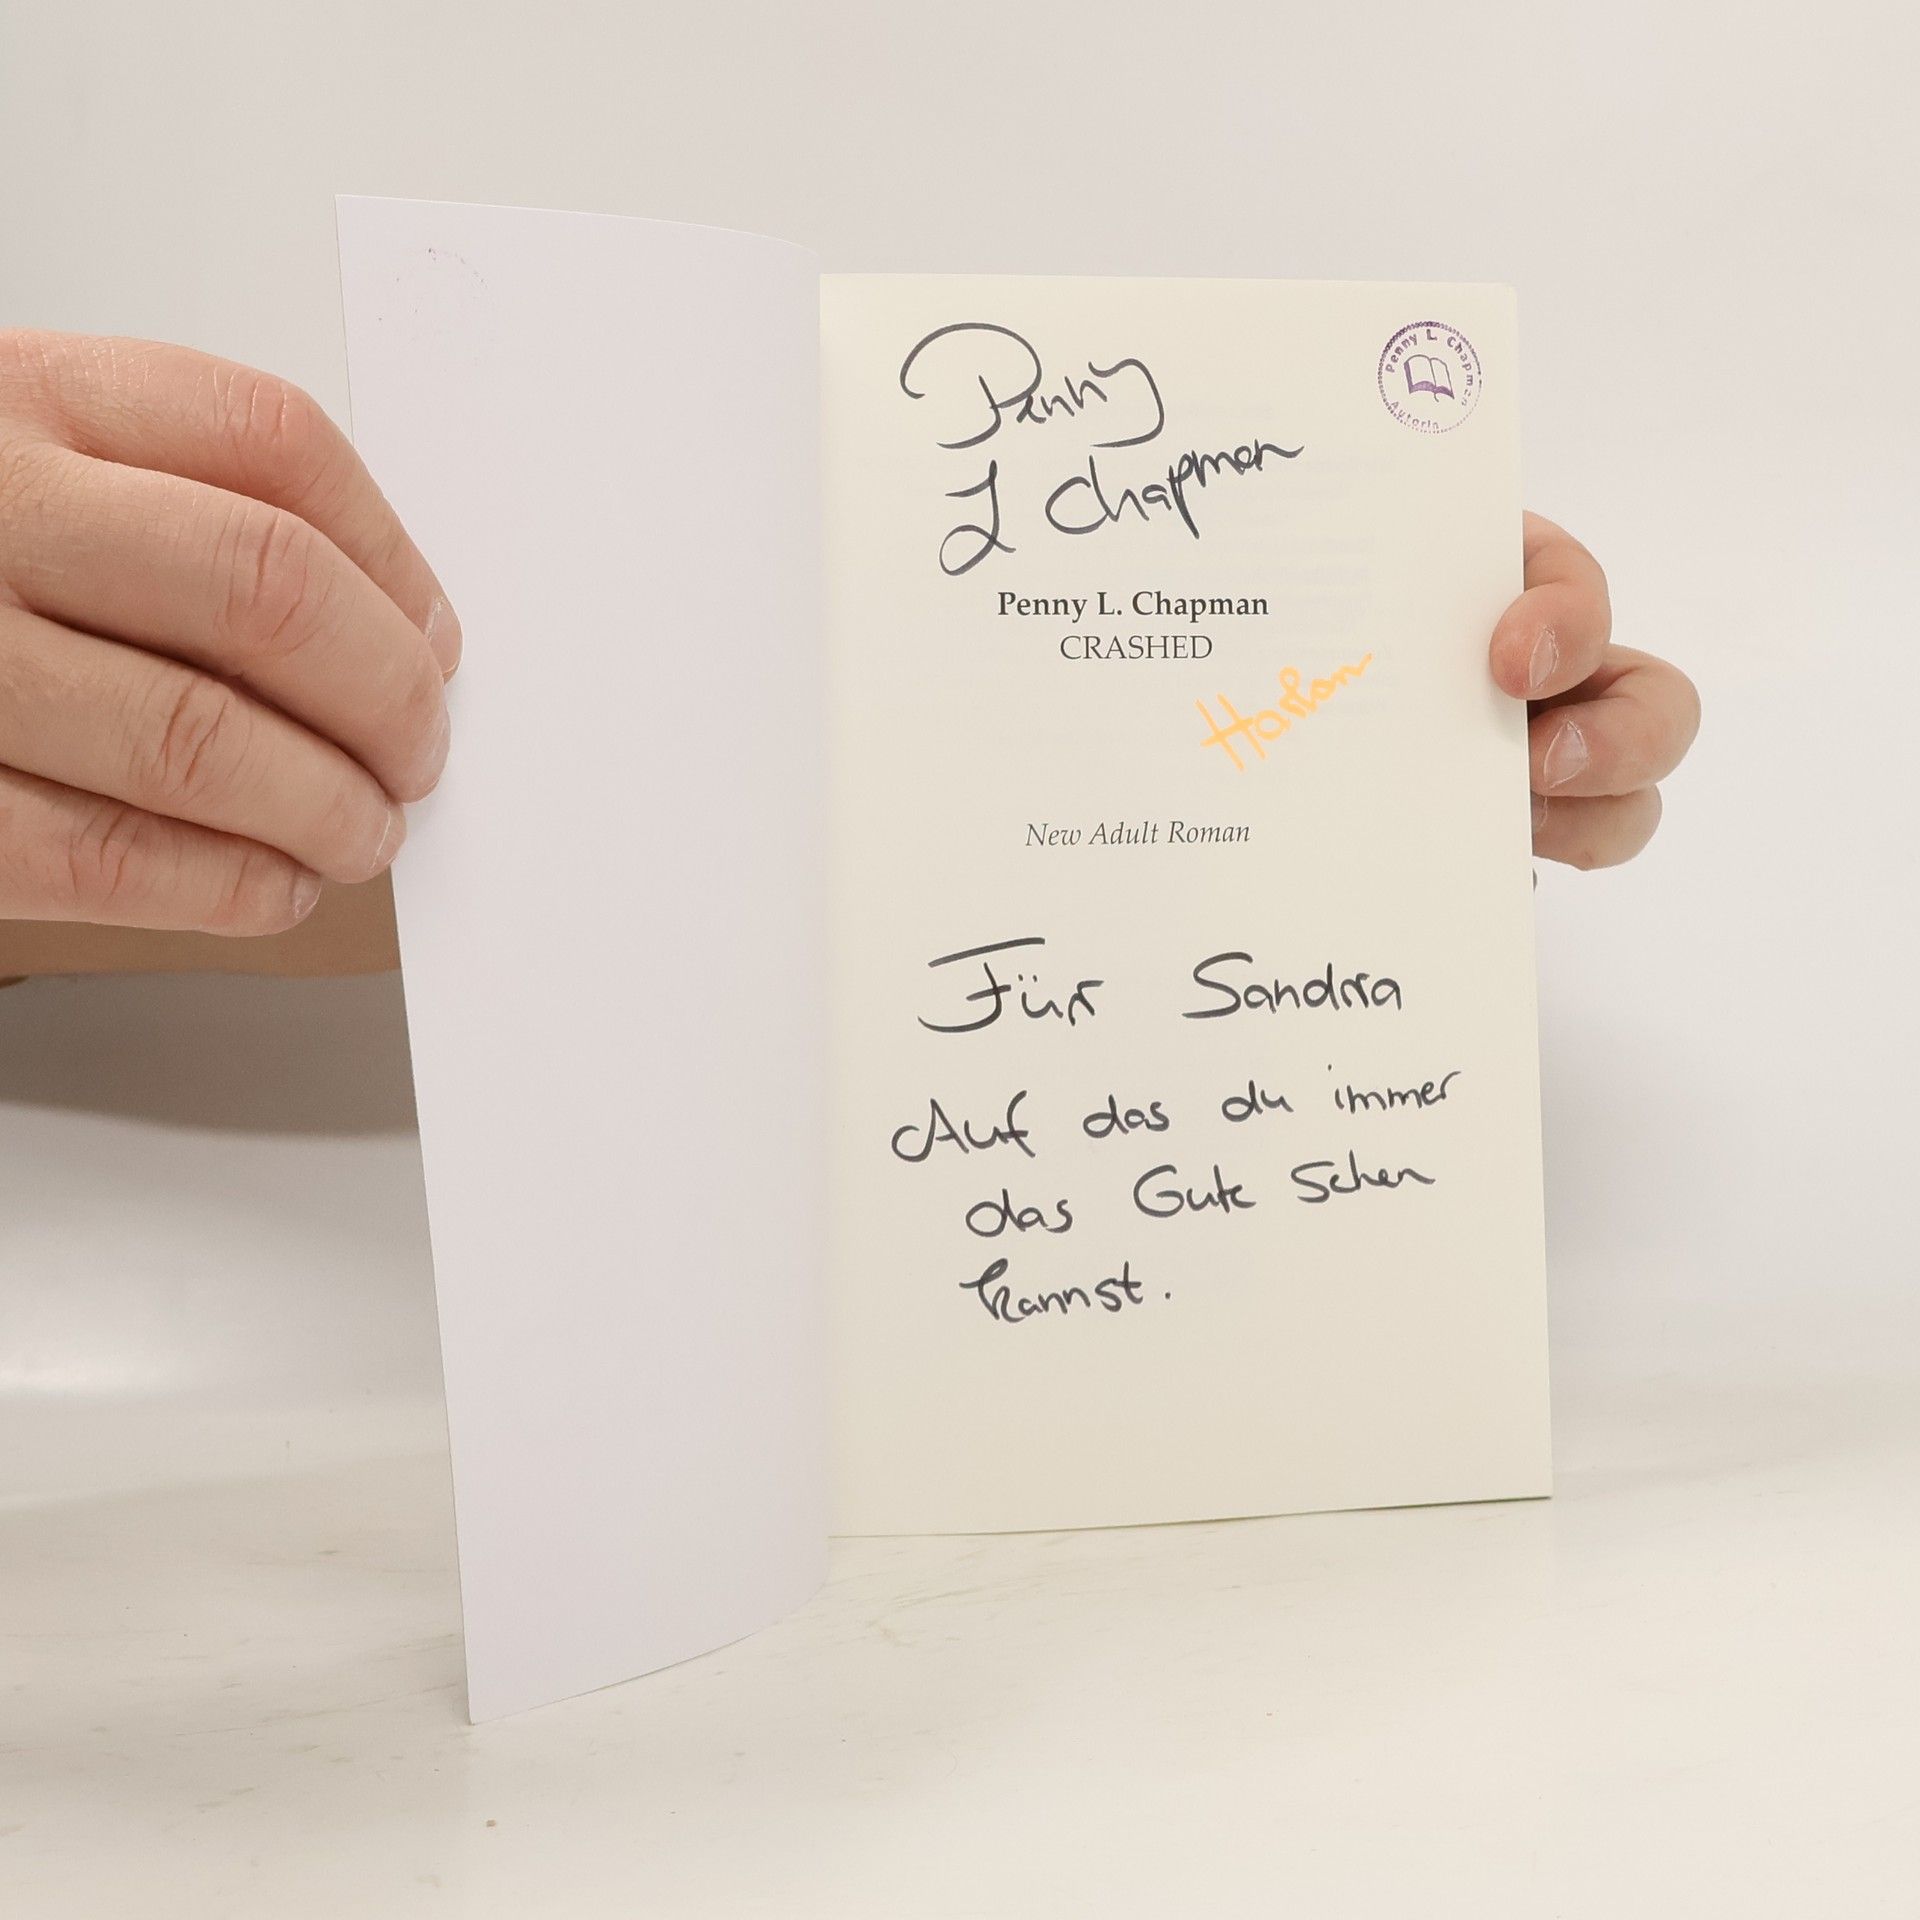 Penny
L Chapman
Penny L Chapman
Autorin
Penny L. Chapman
CRASHED
New Adult Roman
Für Sandra
Auf das du immer
das Gute sehen
kannst.